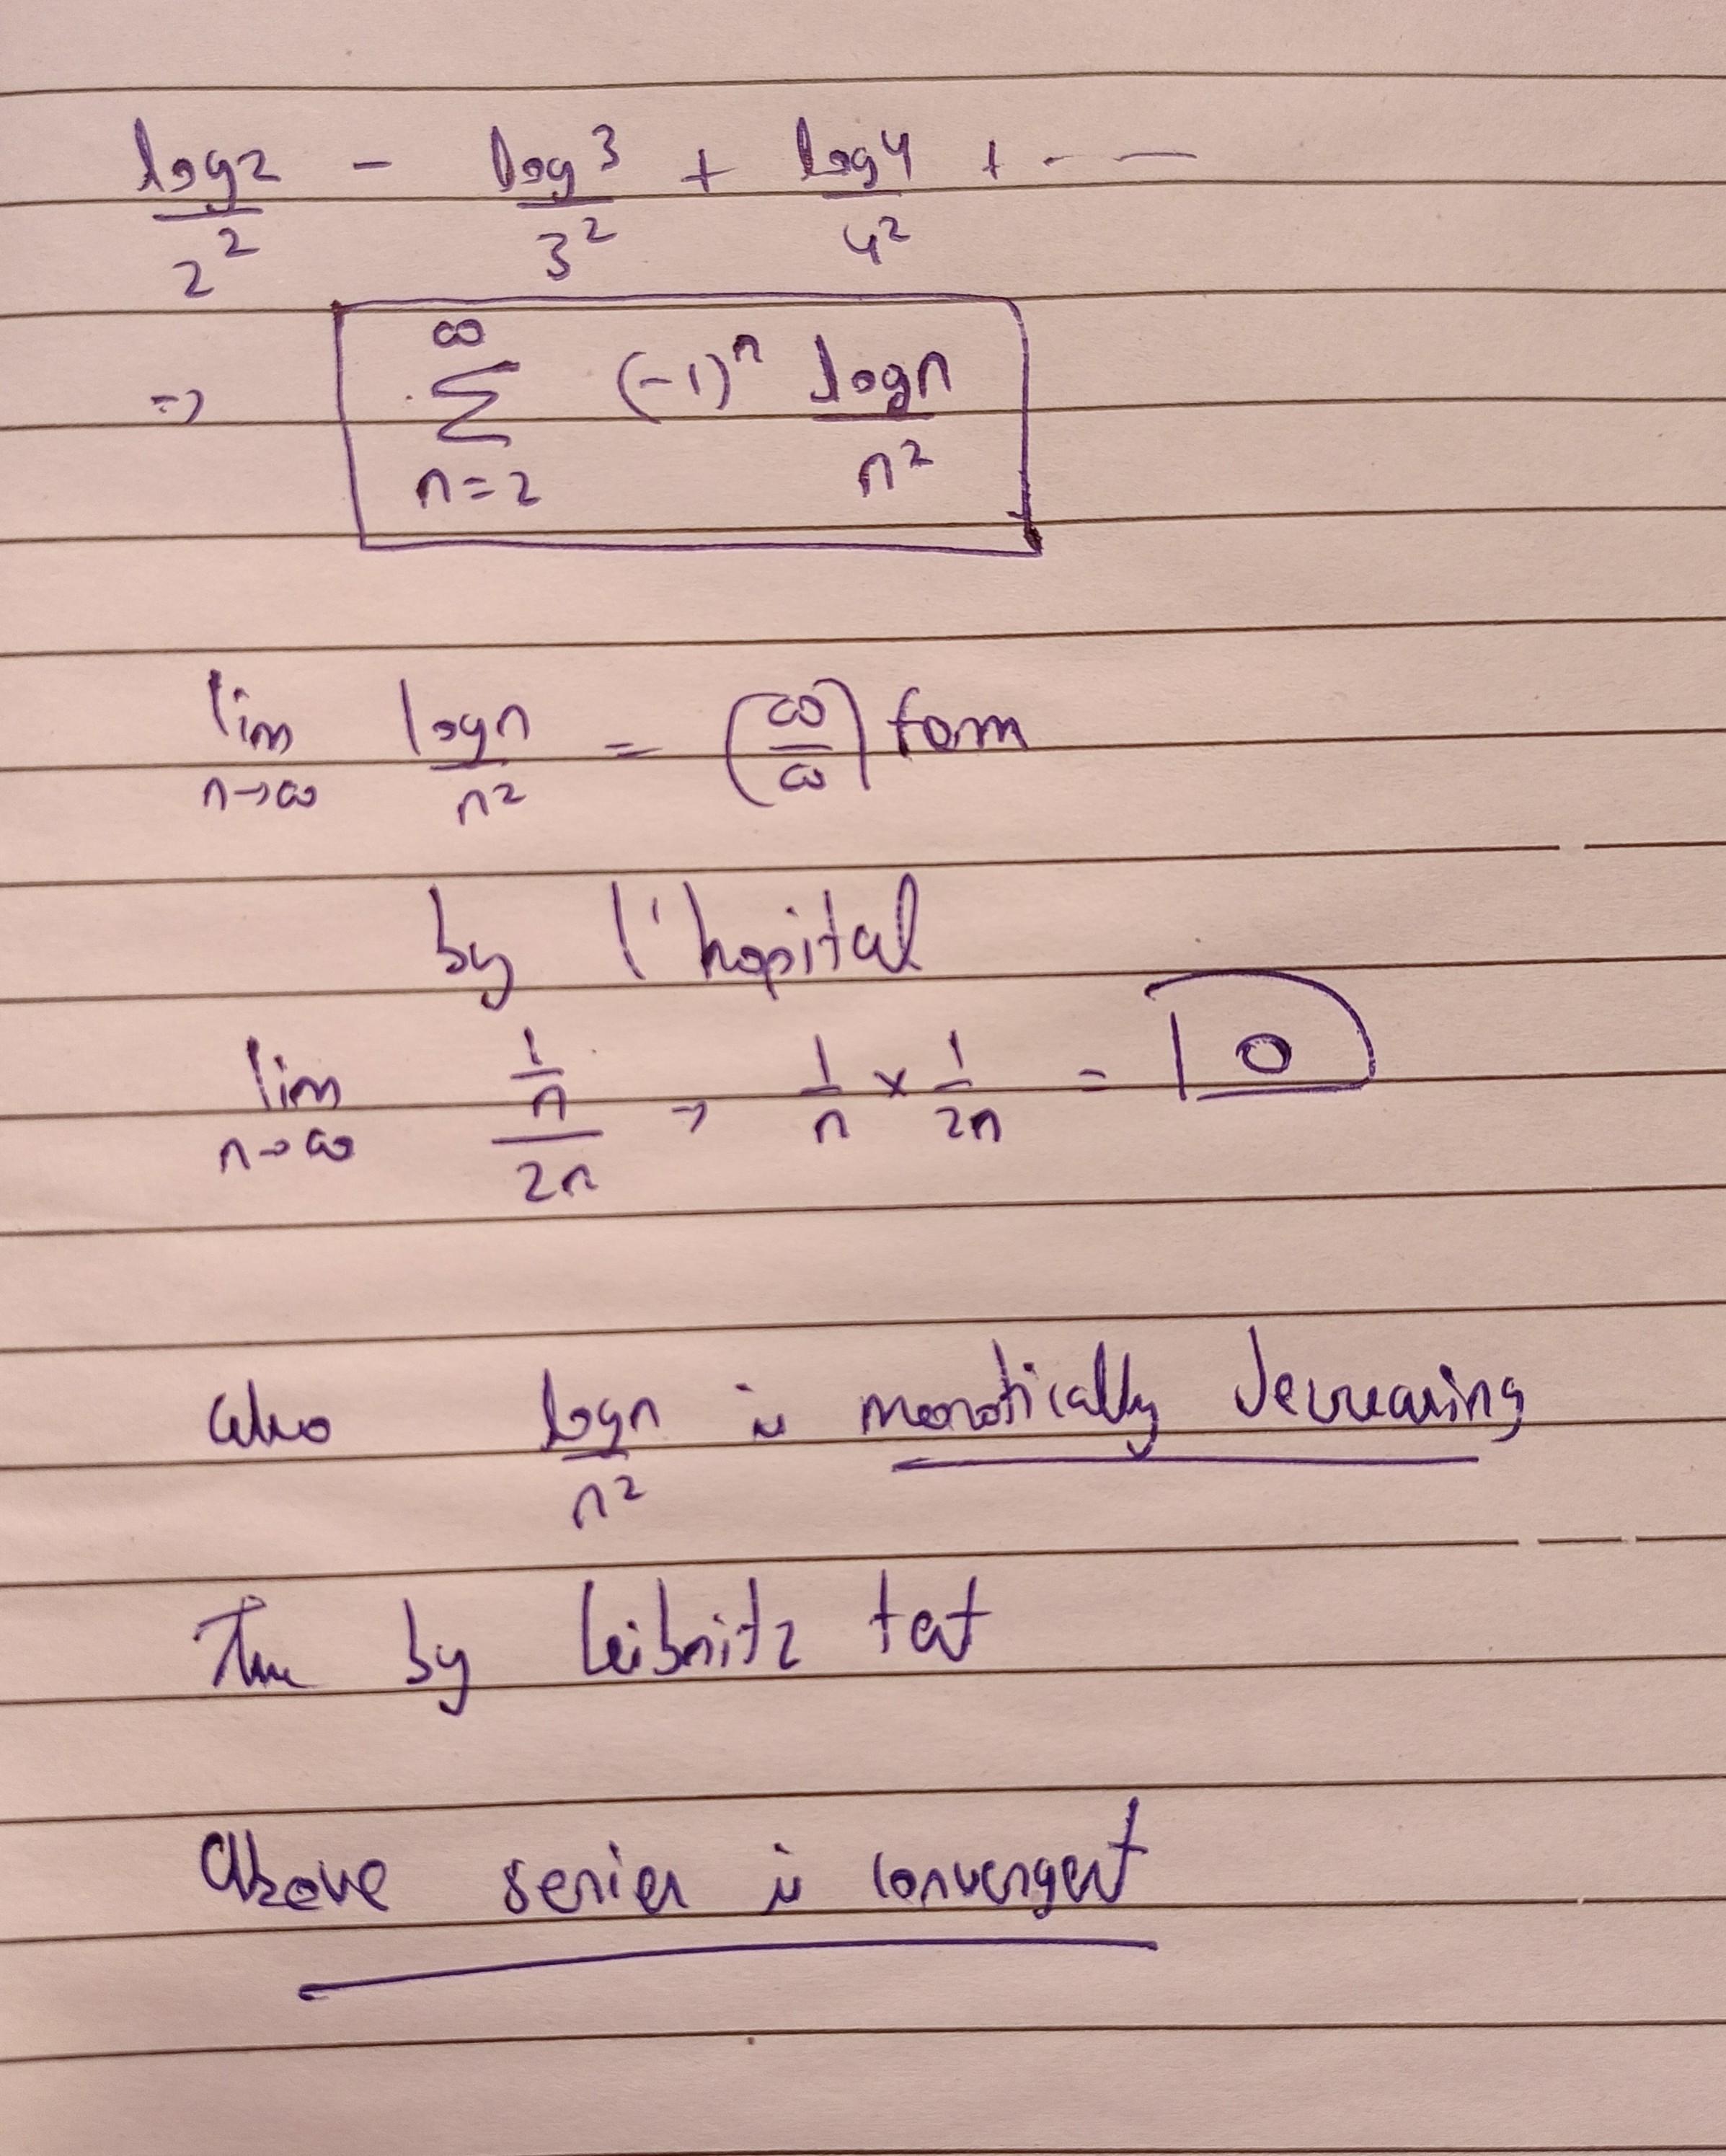 log2/2² - log3/3² + log4/4² + - —
=> ∞ Σ n=2 (-1)ⁿ logn/n²
lim n→∞ logn/n² = (∞/∞) form
by l'hopital
lim n→∞ (1/n)/2n → 1/n × 1/2n = 0
also logn/n² is monotically decreasing
Thus by leibnitz test
Above series is convergent